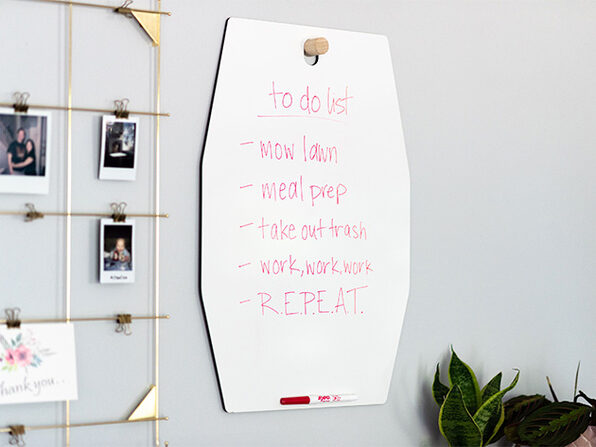 to do list
- mow lawn
- meal prep
- take out trash
- work, work, work
- R.E.P.E.A.T.
EXPO
thank you...